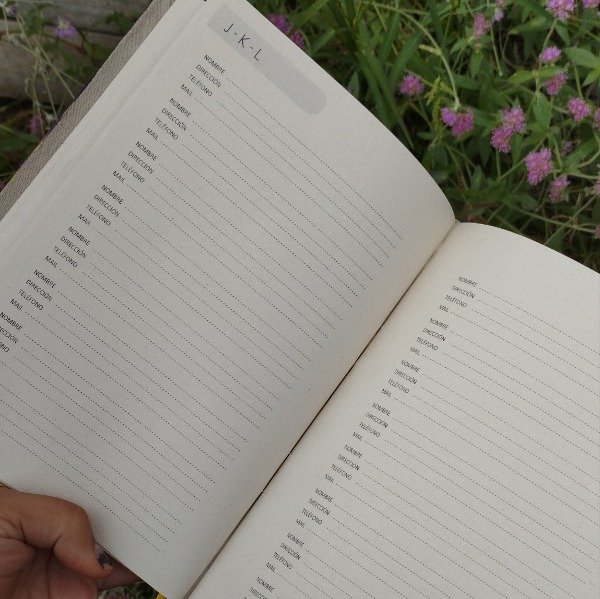 J·K·L
NOMBRE
DIRECCIÓN
TELÉFONO
MAIL
NOMBRE
DIRECCIÓN
TELÉFONO
MAIL
NOMBRE
DIRECCIÓN
TELÉFONO
MAIL
NOMBRE
DIRECCIÓN
TELÉFONO
MAIL
NOMBRE
DIRECCIÓN
TELÉFONO
MAIL
NOMBRE
DIRECCIÓN
TELÉFONO
MAIL
NOMBRE
NOMBRE
DIRECCIÓN
TELÉFONO
MAIL
NOMBRE
DIRECCIÓN
TELÉFONO
MAIL
NOMBRE
DIRECCIÓN
TELÉFONO
MAIL
NOMBRE
DIRECCIÓN
TELÉFONO
MAIL
NOMBRE
DIRECCIÓN
TELÉFONO
MAIL
NOMBRE
DIRECCIÓN
TELÉFONO
MAIL
NOMBRE
DIRECCIÓN
TELÉFONO
MAIL
NOMBRE